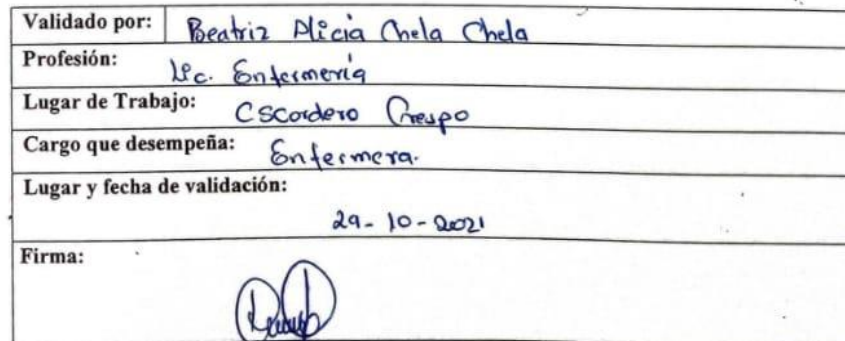 Validado por: Beatriz Alicia Chela Chela
Profesión: Lic. Enfermería
Lugar de Trabajo: CSCordero Crespo
Cargo que desempeña: Enfermera.
Lugar y fecha de validación:
29-10-2021
Firma: